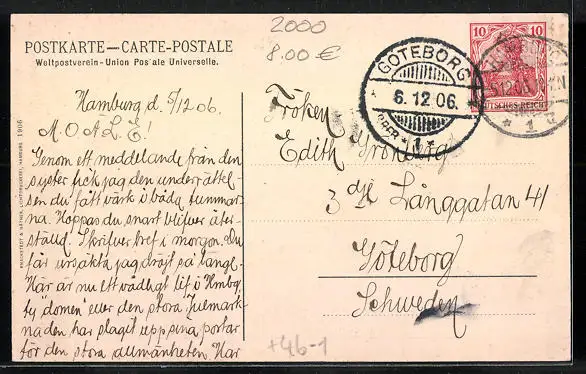 2000
8.00 €
POSTKARTE — CARTE-POSTALE
Weltpostverein - Union Postale Universelle.
Hamburg d. 5/12 06.
M. O. A. L. E!
Genom ett meddelande från den
syster fick jag den underrättel-
sen du fått värk i båda tummar-
na. Hoppas du snart blifver åter-
ställd. Skrifver bref i morgon. Du
får ursäkta jag dröjt så länge.
Här är nu ett väldigt lif i Hmbg,
ty "domen" eller den stora Julmark-
naden har slagit upp sina portar
för den stora allmänheten. Har
KNACKSTEDT & NÄTHER, LICHTDRUCKEREI, HAMBURG 1906
GÖTEBORG
6.12.06.
1
10 10
DEUTSCHES REICH
5.12.06
* 1
Fröken
Edith
3 dje Långgatan 41
Göteborg
Schweden
+46-1